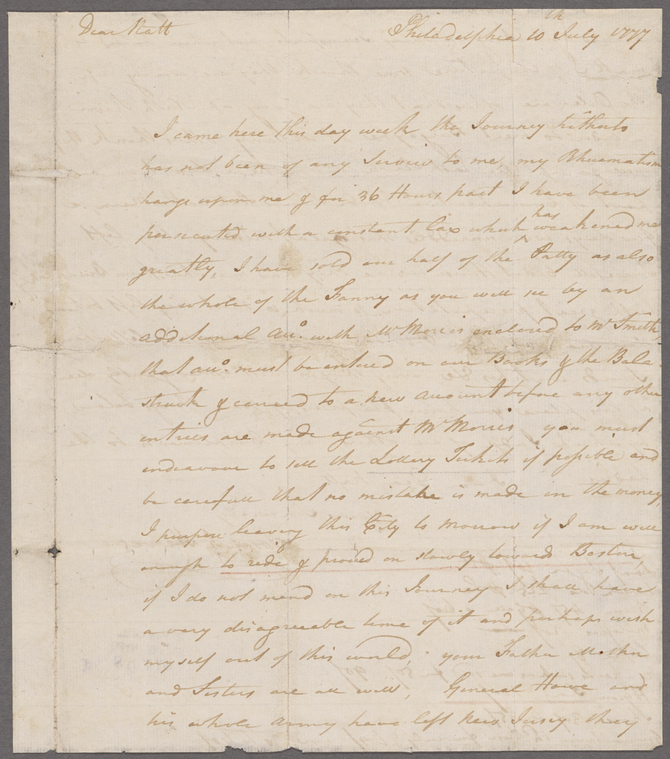 Dear Natt
Philadelphia 10th July 1777
I came here this day week the Journey hitherto
has not been of any Service to me, my Rheumatism
hangs upon me & for 36 Hours past I have been
persecuted with a constant Lax which has weakened me
greatly, I have sold one half of the Patty as also
the whole of the Fanny as you will see by an
additional Auo. with Mr Morris enclosed to Mr Smith,
that auo. must be entered on our Books & the Bala
struck & carried to a new account before any other
entries are made against Mr Morris you must
endeavour to sell the Lottery Tickets if possible and
be carefull that no mistake is made in the money
I purpose leaving this City to Morrow if I am well
enough to ride & proceed on slowly towards Boston,
if I do not mend on this Journey I shall have
a very disagreeable time of it and perhaps wish
myself out of this world, your Father Mother
and Sisters are all well, General Howe and
his whole Army have left New Jersey they